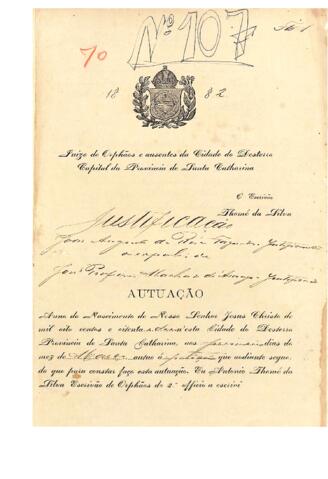 Nº 107
70
1882
Juizo de Orphãos e ausentes da Cidade do Desterro
Capital da Provincia de Santa Catharina
O Escrivão
Thomé da Silva
Justificação
José Augusto
José Machado de
AUTUAÇÃO
Anno do Nascimento de Nosso Senhor Jesus Christo de
mil oito centos e oitenta n'esta Cidade do Desterro
Provincia de Santa Catharina, aos dias do
mez de autuo a petição que adiante segue.
do que para constar faço esta autuação. Eu Antonio Thomé da
Silva Escrivão de Orphãos de 2º officio a escrivi